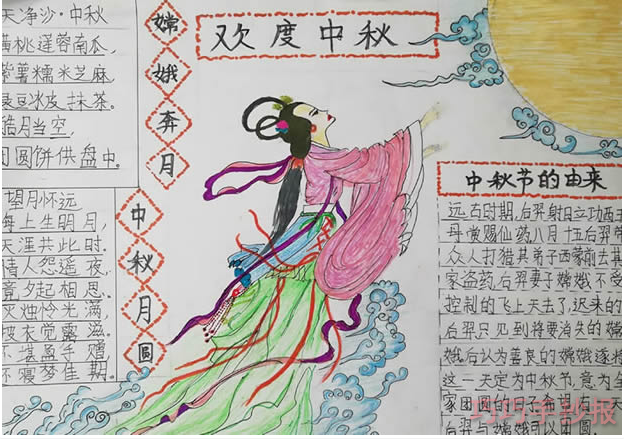 欢度中秋
天净沙·中秋
黄桃莲蓉南瓜，
紫薯糯米芝麻，
绿豆冰皮抹茶。
皓月当空，
月圆饼供盘中。
嫦娥奔月
望月怀远
海上生明月，
天涯共此时。
情人怨遥夜，
竟夕起相思。
灭烛怜光满，
披衣觉露滋。
不堪盈手赠，
还寝梦佳期。
中秋月圆
中秋节的由来
远古时期，后羿射日立功西王
母赏赐仙药八月十五后羿带
众人打猎其弟子西蒙前去其
家盗药后羿妻子嫦娥不受
控制的飞上天去了，迟来的
后羿只见到将要消失的嫦
娥后认为善良的嫦娥逐
这一天定为中秋节，意为全
家团圆的日子希望
后羿与嫦娥可以团圆。
巧巧手抄报